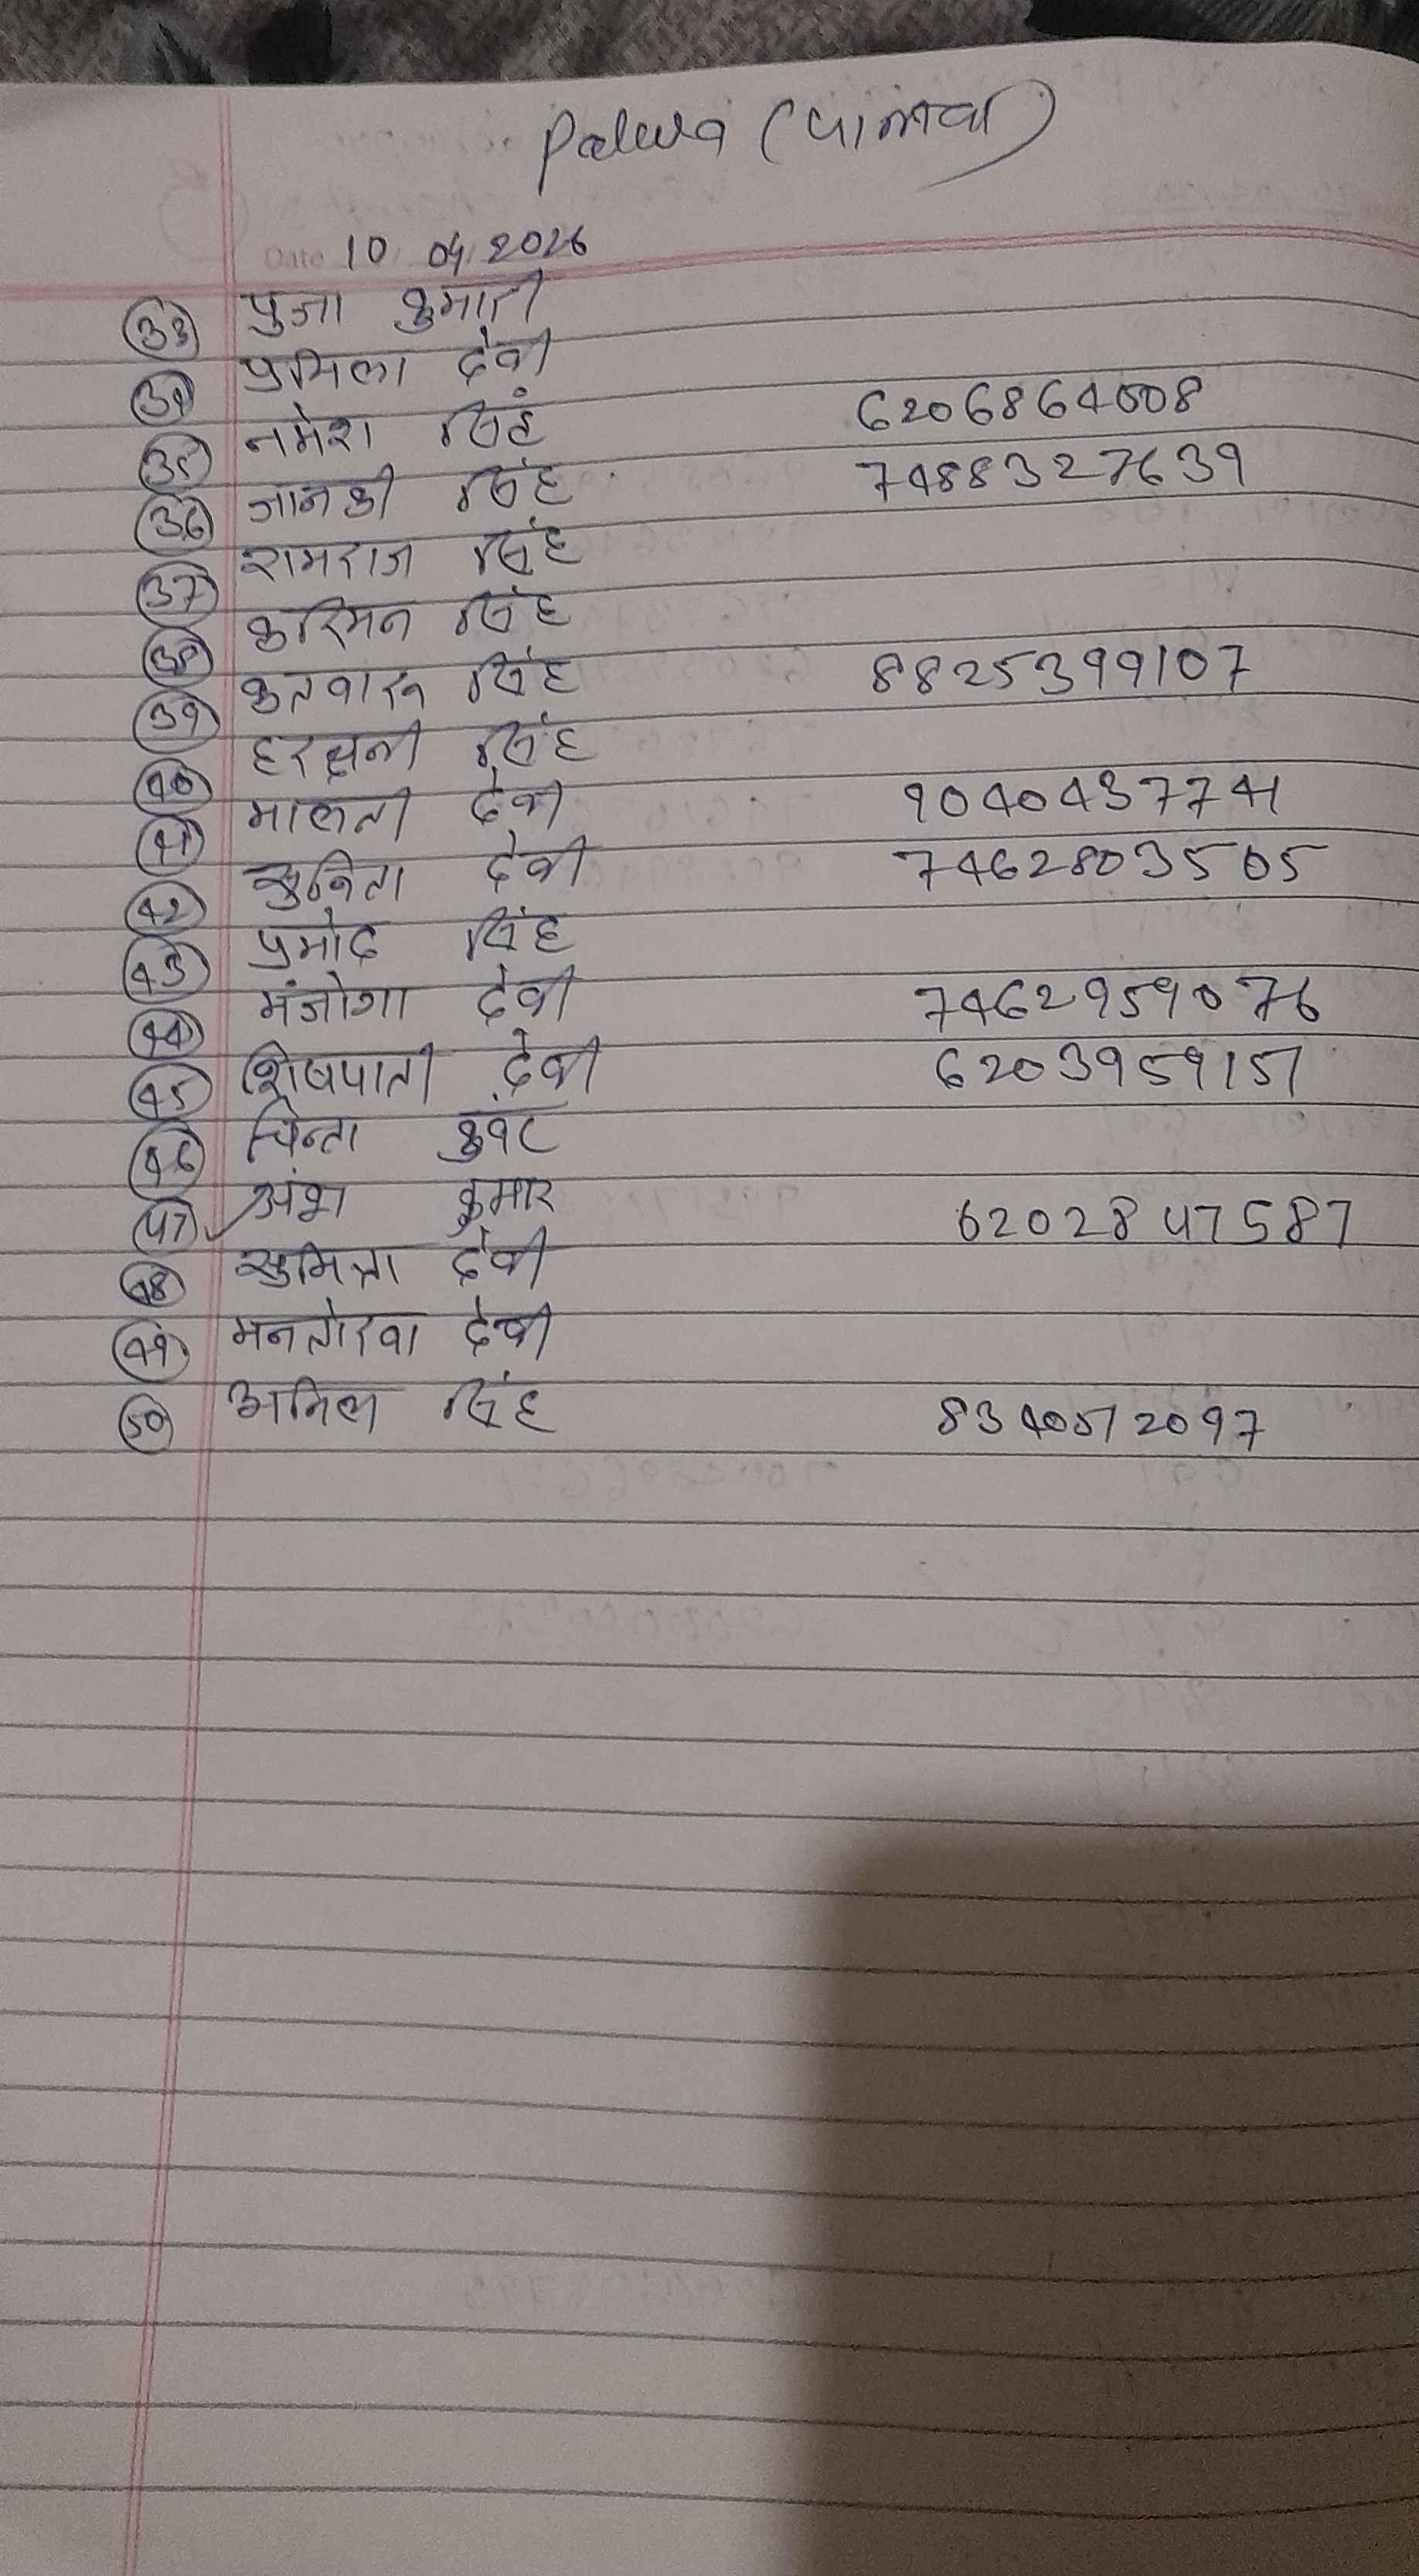 Palwa (पालवा)
Date 10 04 2026
33 पुजा कुमारी
34 प्रमिला देवी
35 नमेश सिंह 6206864008
36 जानकी सिंह 7488327639
37 रामराज सिंह
38 करिमन सिंह
39 कतवारू सिंह 8825399107
40 सिंह
41 मालती देवी 9040437741
42 सुनिता देवी 7462803505
43 प्रमोद सिंह
44 मंजोगा देवी 7462959076
45 शिवपाती देवी 6203959151
46 चिन्ता कुवर
47 अंश कुमार 6202847587
48 सुमित्रा देवी
49 मनतोरवा देवी
50 अनिल सिंह 8340512097